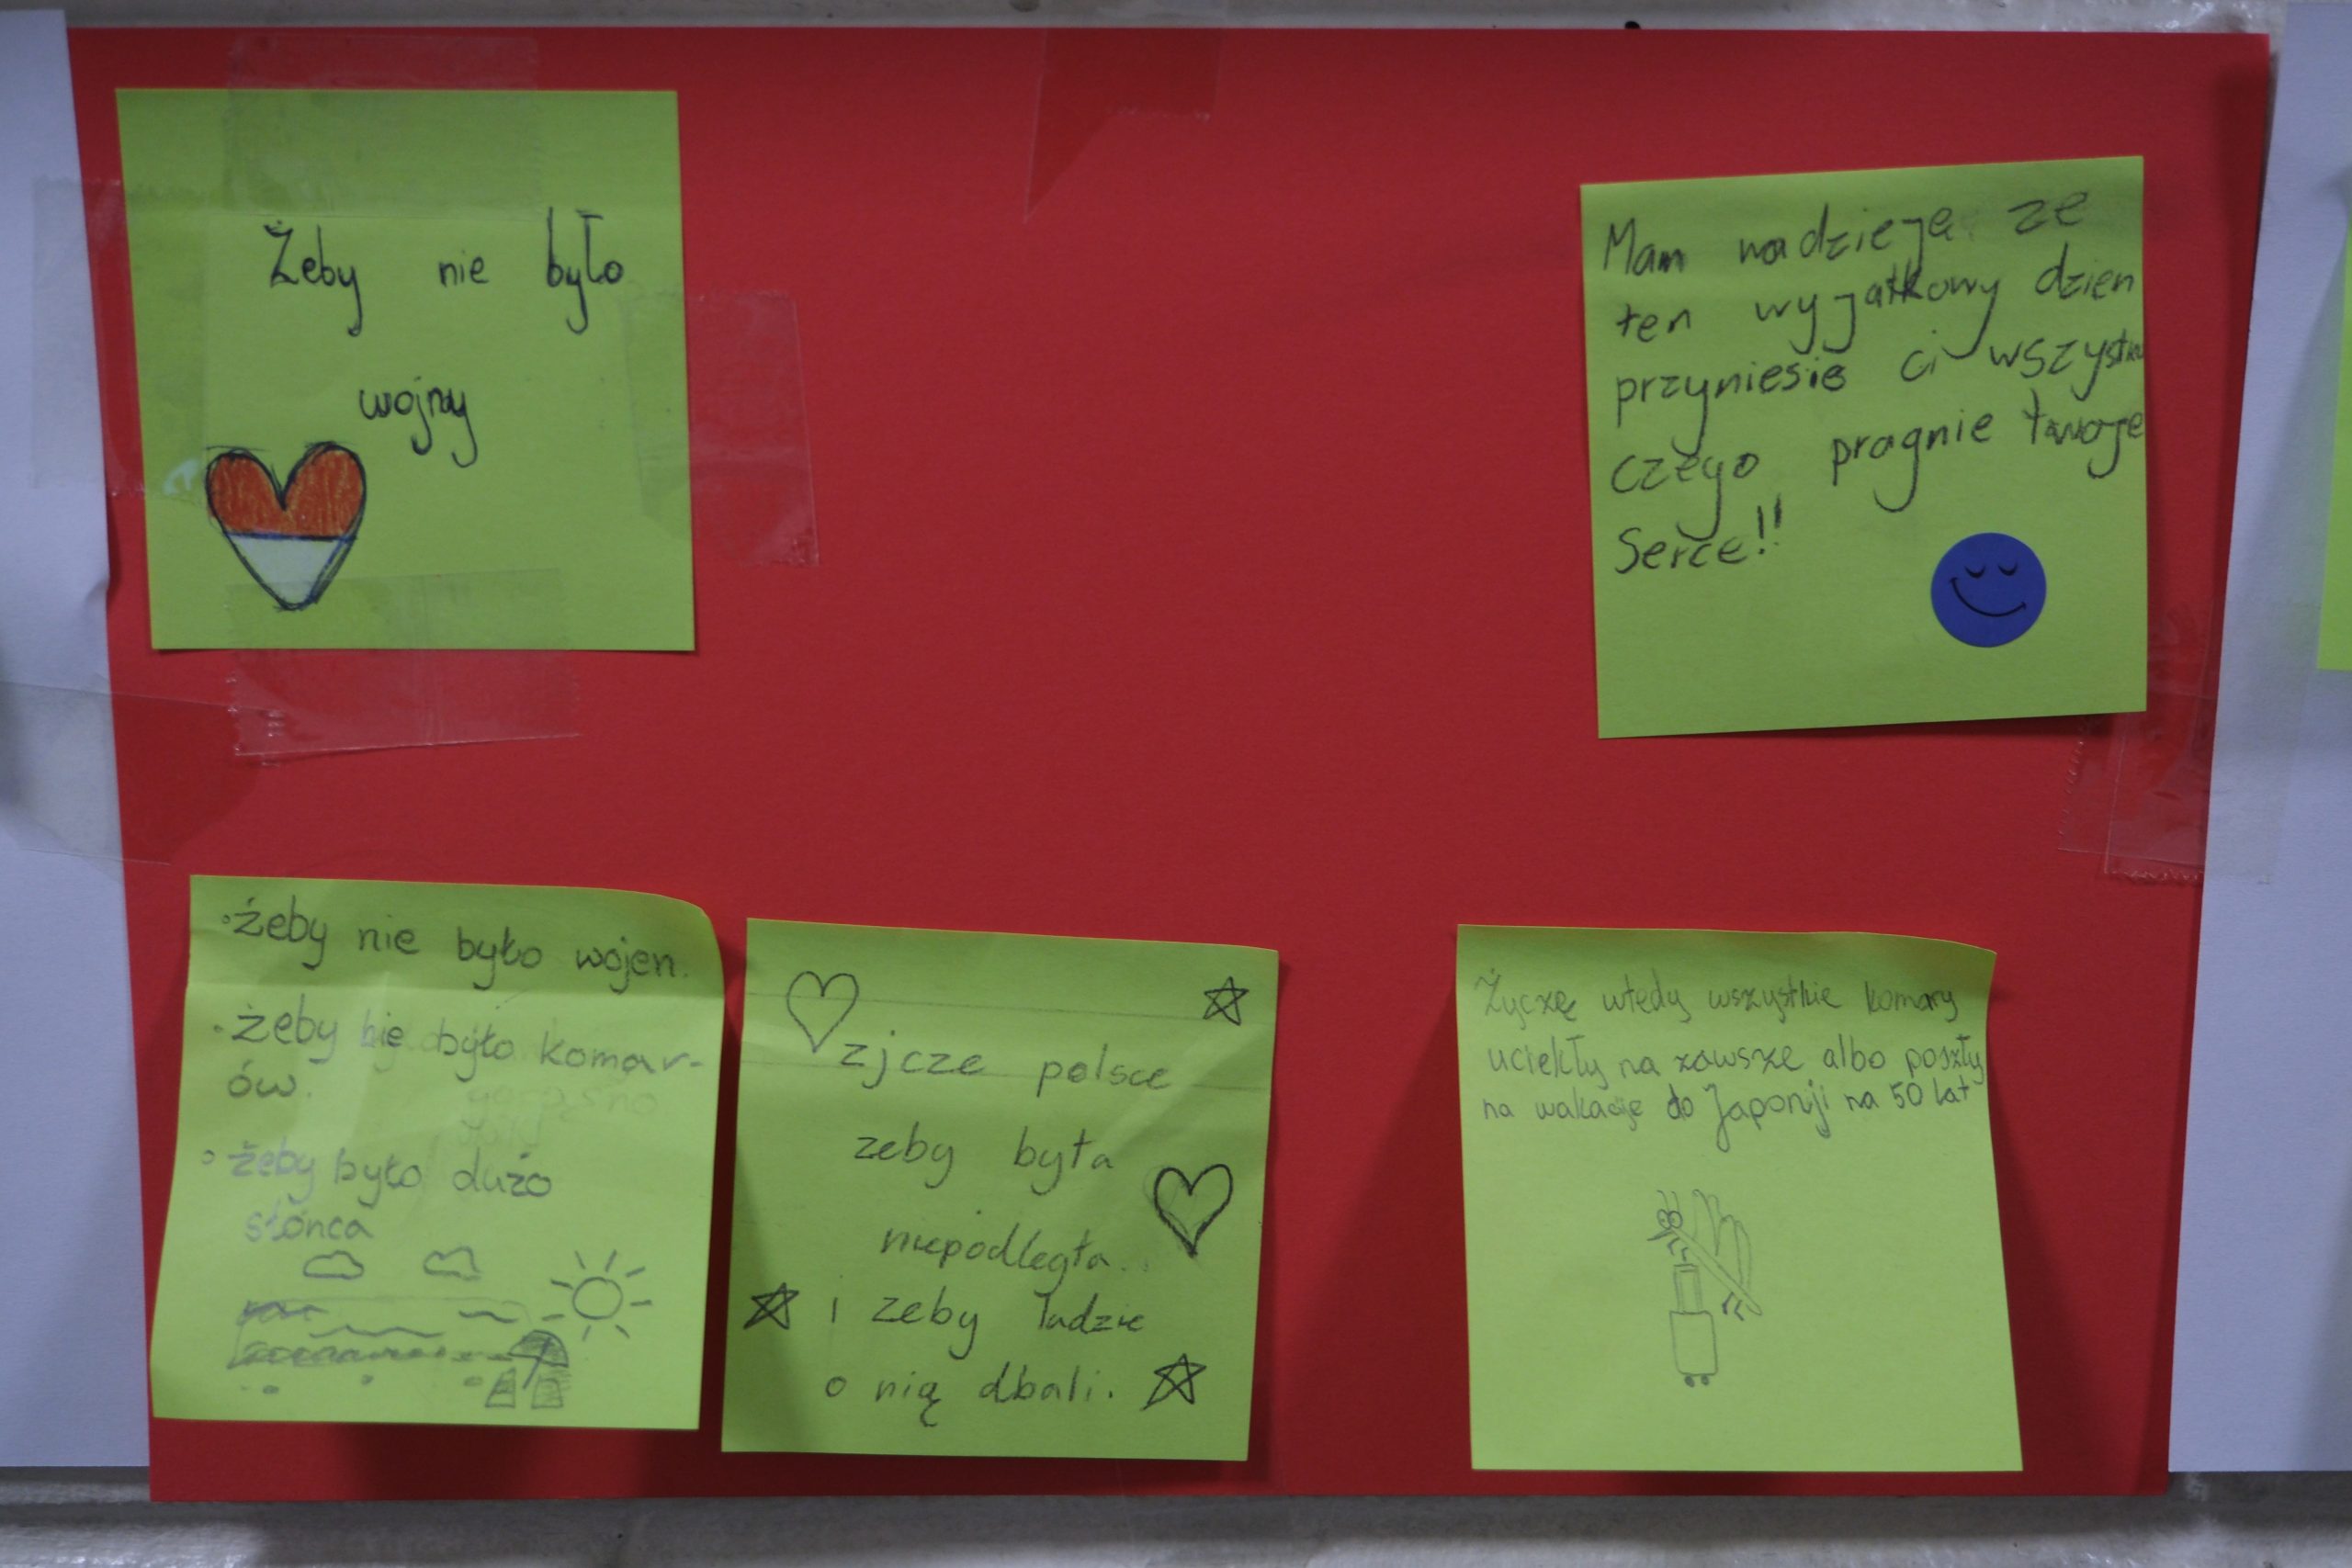 Żeby nie było
wojny
Mam nadzieje ze
ten wyjatkowy dzien
przyniesie ci
czego pragnie twoje
Serce!!
•żeby nie było wojen.
•żeby nie było komar-
ów.
•żeby było dużo
słońca
zjcze polsce
zeby była
niepodległa.
i zeby ludzie
o nią dbali.
Życzę wtedy wszystkie komary
uciekły na zawsze albo poszły
na wakacje do Japoniji na 50 lat